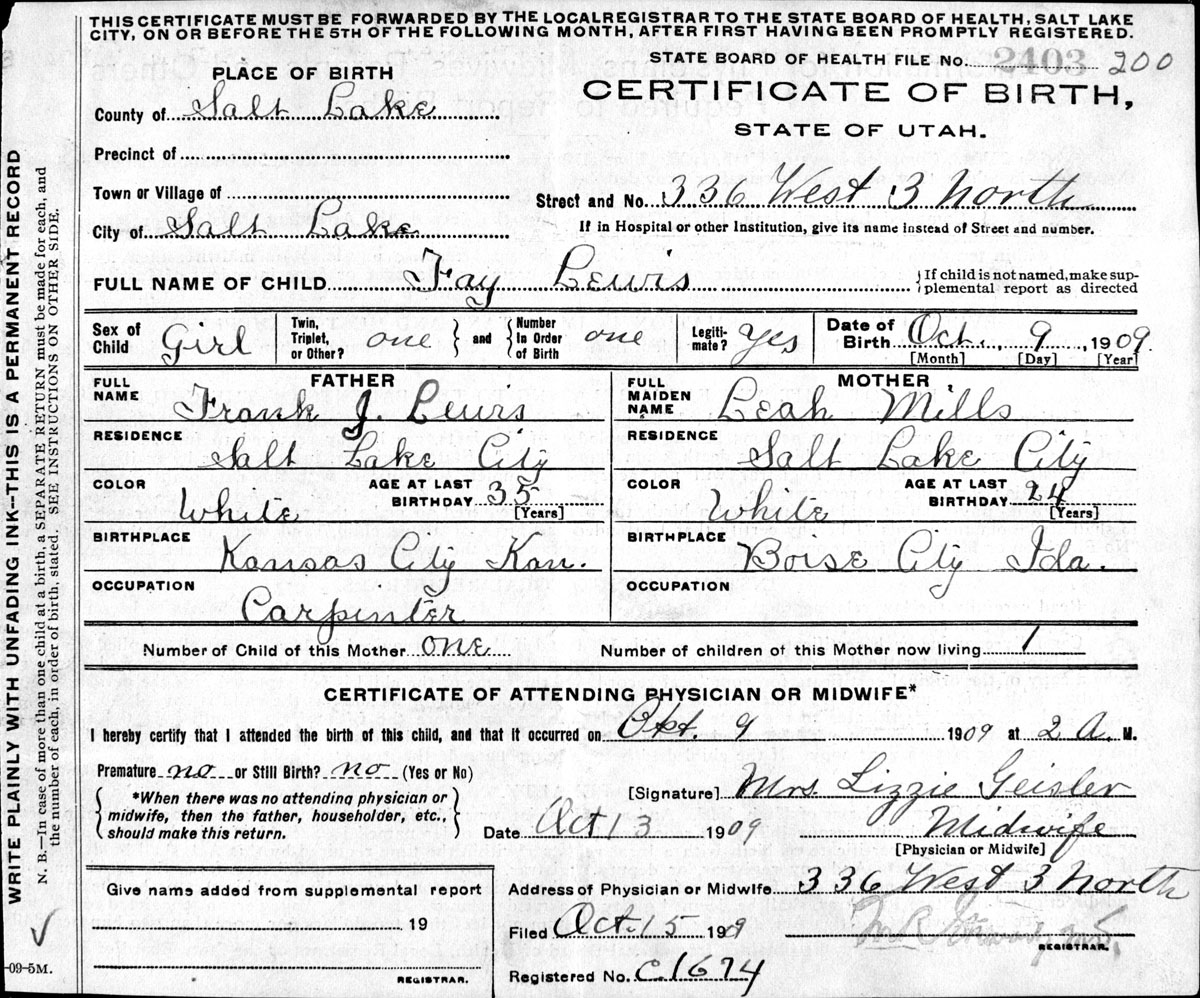 THIS CERTIFICATE MUST BE FORWARDED BY THE LOCALREGISTRAR TO THE STATE BOARD OF HEALTH, SALT LAKE
CITY, ON OR BEFORE THE 5TH OF THE FOLLOWING MONTH, AFTER FIRST HAVING BEEN PROMPTLY REGISTERED.
STATE BOARD OF HEALTH FILE No. 2403 200
PLACE OF BIRTH
CERTIFICATE OF BIRTH,
STATE OF UTAH.
County of Salt Lake
Precinct of
Town or Village of
Street and No. 336 West 3 North
City of Salt Lake
If in Hospital or other Institution, give its name instead of Street and number.
FULL NAME OF CHILD Fay Lewis
If child is not named, make sup-
plemental report as directed
Sex of Child Girl
Twin, Triplet, or Other? one
and
Number In Order of Birth one
Legiti-mate? Yes
Date of Birth Oct. 9, 1909.
[Month] [Day] [Year]
FATHER
FULL NAME Frank J. Lewis
RESIDENCE Salt Lake City
COLOR White
AGE AT LAST BIRTHDAY 35 [Years]
BIRTHPLACE Kansas City Kan.
OCCUPATION Carpenter
MOTHER
FULL MAIDEN NAME Leah Mills
RESIDENCE Salt Lake City
COLOR White
AGE AT LAST BIRTHDAY 24 [Years]
BIRTHPLACE Boise City Ida.
OCCUPATION
Number of Child of this Mother one
Number of children of this Mother now living 1
CERTIFICATE OF ATTENDING PHYSICIAN OR MIDWIFE*
I hereby certify that I attended the birth of this child, and that it occurred on Okt. 9 1909 at 2 A. M.
Premature no or Still Birth? no (Yes or No)
*When there was no attending physician or
midwife, then the father, householder, etc.,
should make this return.
[Signature] Mrs. Lizzie Geisler
Date Oct 13 1909
Midwife
[Physician or Midwife]
Give name added from supplemental report
19
REGISTRAR.
Address of Physician or Midwife 336 West 3 North
Filed Oct. 15 1909
REGISTRAR.
Registered No. C.1674
WRITE PLAINLY WITH UNFADING INK--THIS IS A PERMANENT RECORD
N. B.—In case of more than one child at a birth, a SEPARATE RETURN must be made for each, and
the number of each, in order of birth, stated. SEE INSTRUCTIONS ON OTHER SIDE.
-09-5M.